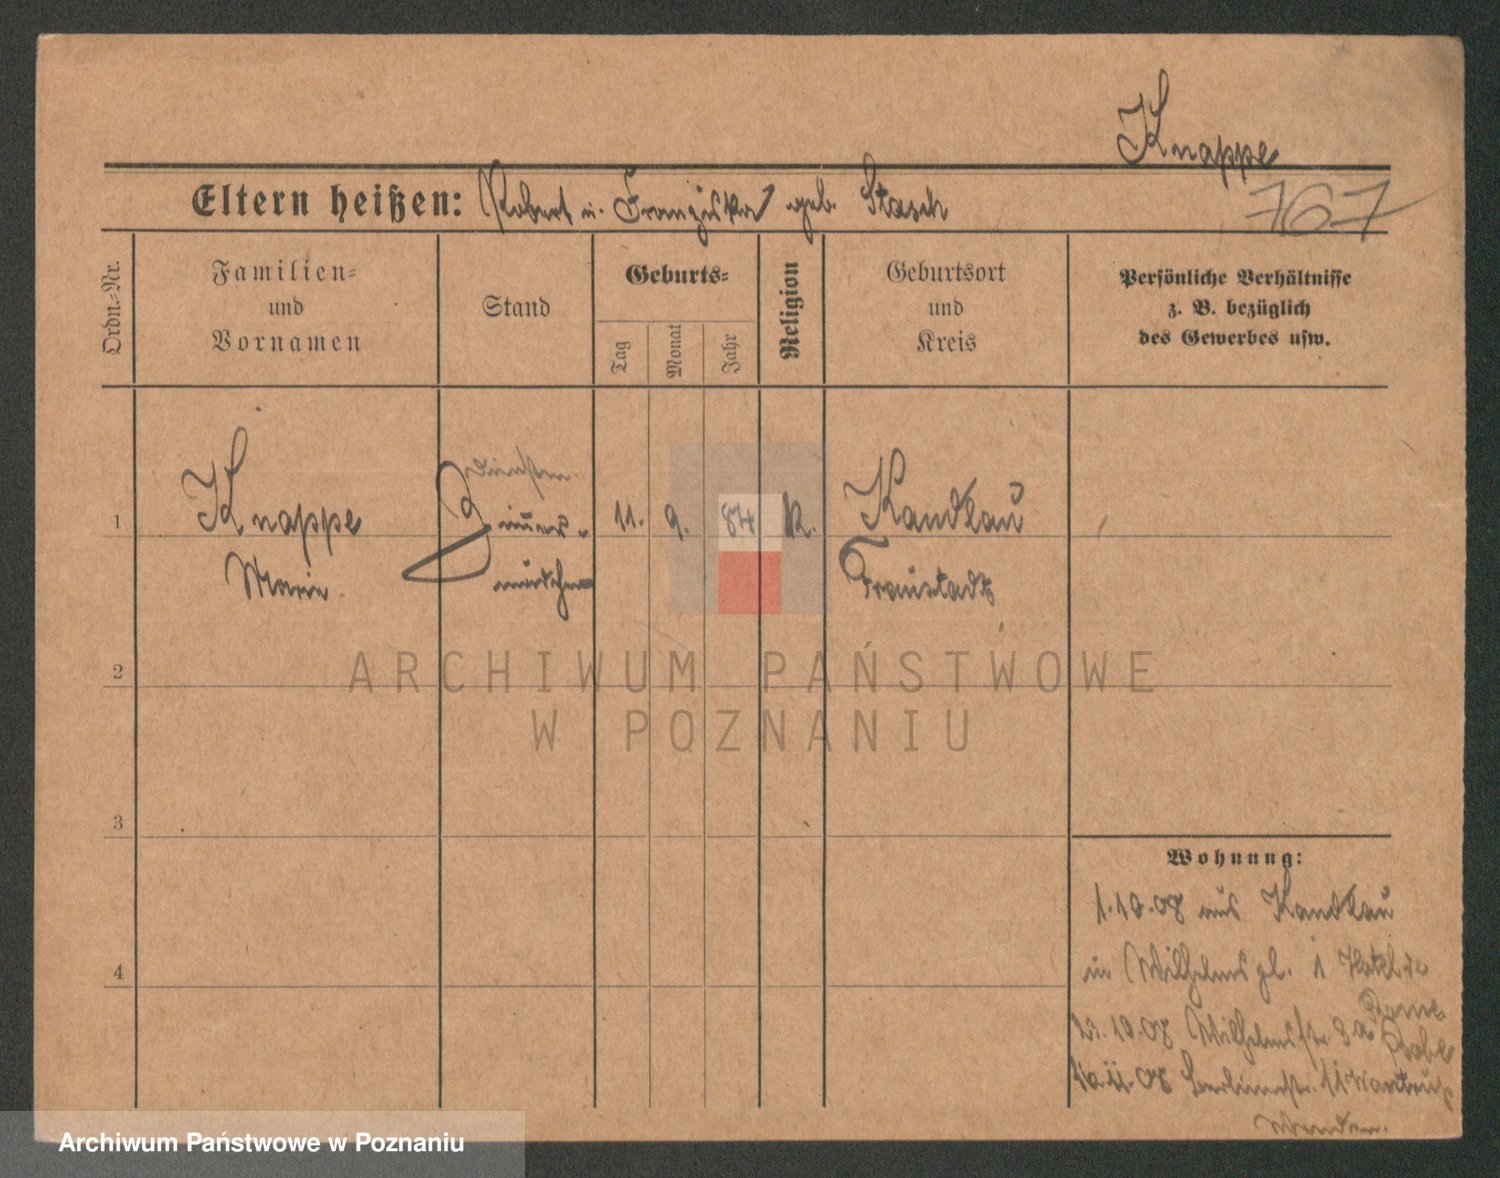 Knappe
Eltern heißen: Robert u. Franziska geb. Stasch
767
Ordn.=Nr.
Familien=
und
Vornamen
Stand
Geburts=
Tag
Monat
Jahr
Religion
Geburtsort
und
Kreis
Persönliche Verhältnisse
z. B. bezüglich
des Gewerbes usw.
1
Knappe
Marie
11. 9. 84 K.
Kandlau
Fraustadt
2
3
4
Wohnung:
1.10.08 aus Kandlau
in Wilhelmspl. 1 Hotel de
Rome
10.08 Wilhelmstr. 3a
11.08 Berlinerstr. 11
ARCHIWUM PAŃSTWOWE
W POZNANIU
Archiwum Państwowe w Poznaniu